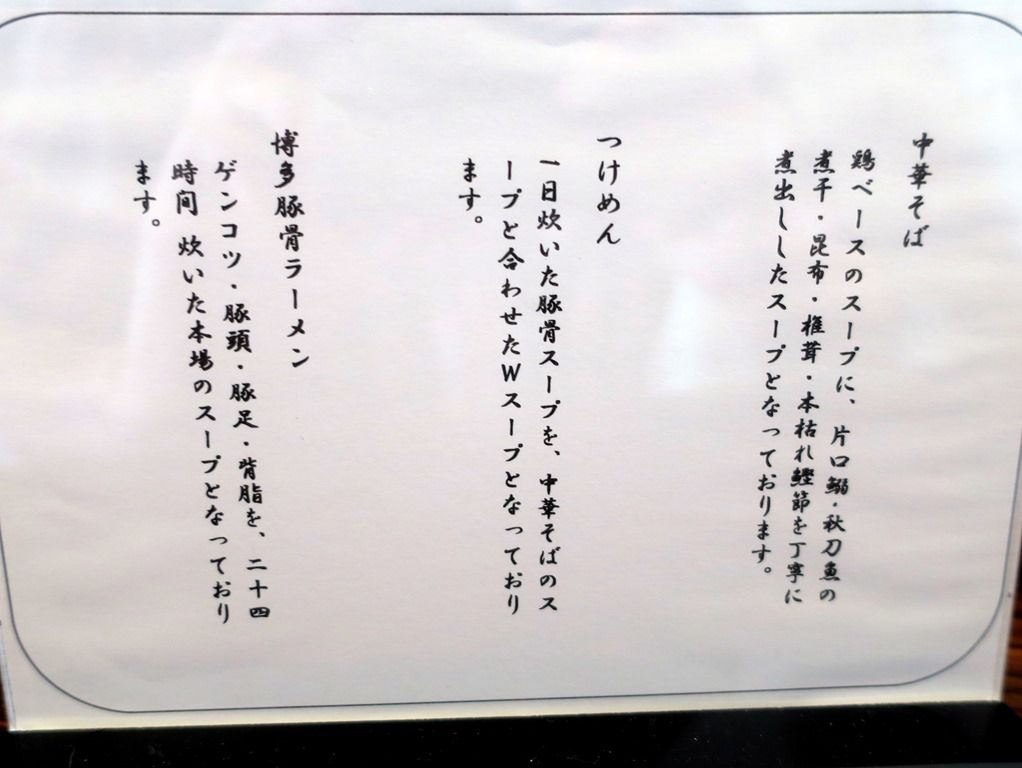 中華そば
鶏ベースのスープに、片口鰯・秋刀魚の
煮干・昆布・椎茸・本枯れ鰹節を丁寧に
煮出ししたスープとなっております。
つけめん
一日炊いた豚骨スープを、中華そばのス
ープと合わせたWスープとなっており
ます。
博多豚骨ラーメン
ゲンコツ・豚頭・豚足・背脂を、二十四
時間 炊いた本場のスープとなっており
ます。